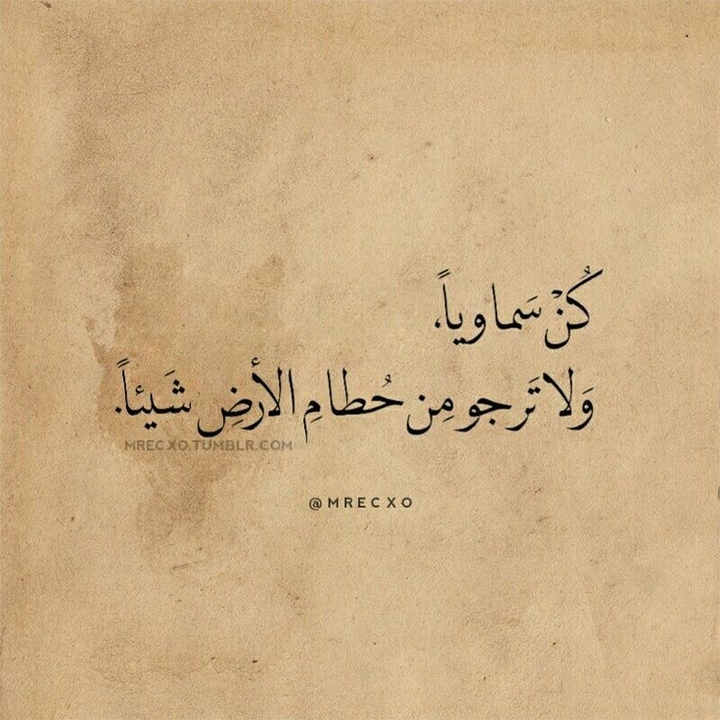 كُنْ سَماوياً،
وَلا تَرجو مِن حُطامِ الأرضِ شَيئاً.
MRECXO.TUMBLR.COM
@MRECXO